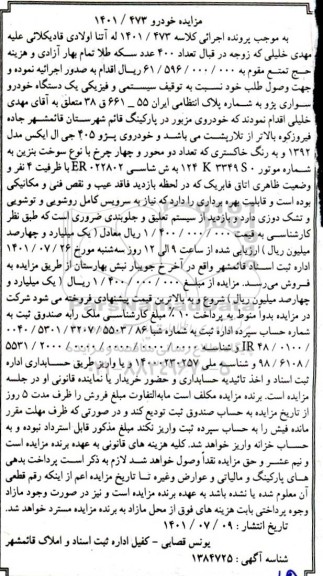 مزایده خودرو ۴۷۳ / ۱۴۰۱
به موجب پرونده اجرائی کلاسه ۴۷۳ / ۱۴۰۱ له آتنا اولادی قادیکلائی علیه
مهدی خلیلی که زوجه در قبال تعداد ۴۰۰ عدد سکه طلا تمام بهار آزادی و هزینه
حج تمتع مقوم به ۰۰۰ / ۰۰۰ / ۵۹۶ / ۶۱ ریال اقدام به صدور اجرائیه نموده و
جهت وصول طلب خود نسبت به توقیف سیستمی و فیزیکی یک دستگاه خودرو
سواری پژو به شماره پلاک انتظامی ایران ۵۵ _ ۶۶۱ ق ۳۸ متعلق به آقای مهدی
خلیلی اقدام نمودند که خودروی مزبور در پارکینگ قائم شهرستان قائمشهر جاده
فیروزکوه بالاتر از تلارپشت می باشد و خودروی پژو ۴۰۵ جی ال ایکس مدل
۱۳۹۲ و به رنگ خاکستری که تعداد دو محور و چهار چرخ با نوع سوخت بنزین به
شماره موتور ۱۲۴ K ۳۳۴۹ S ۰ به ش شاسی ER ۰۲۲۸۰۲ با ظرفیت ۴ نفر و
وضعیت ظاهری اتاق فابریک که در لحظه بازدید فاقد عیب و نقص فنی و مکانیکی
بوده است و قابلیت بهره برداری را دارد که نیاز به سرویس کامل روشویی و توشویی
و تشک دوزی دارد و بازدید از سیستم تعلیق و جلوبندی ضروری است که طبق نظر
کارشناسی به قیمت ۰۰۰ / ۰۰۰ / ۴۰۰ / ۱ ریال معادل ( یک میلیارد و چهارصد
میلیون ریال ) ارزیابی شده از ساعت ۹ الی ۱۲ روز سه‌شنبه مورخ ۲۶ / ۰۷ / ۱۴۰۱
اداره ثبت اسناد قائمشهر واقع در آخر خ جویبار نبش بهارستان از طریق مزایده به
فروش می‌رسد. مزایده از مبلغ ۰۰۰ / ۰۰۰ / ۴۰۰ / ۱ ریال ( یک میلیارد و
چهارصد میلیون ریال ) شروع و به بالاترین قیمت پیشنهادی فروخته می شود شرکت
در مزایده بدواً منوط به پرداخت ۱۰ ٪ مبلغ کارشناسی ملک رابه صندوق ثبت به
شماره حساب سپرده اداره ثبت به شماره شبا ۸۶ / ۵۵۰۳ / ۳۲۰۷ / ۵۳۰۱ / ۰۰۴۰
/ ۰۱۰۰ / ۴۸ IR و شناسه ۰۰۰۰ / ۰۰۰۰ / ۰۰۰۰ / ۰۰۰۰ / ۲۰۰۰ / ۵۵۳۱
/ ۶۱۰۸ / ۹۸ و شناسه ملی ۱۴۰۰۰۲۳۰۲۵۷ و یا واریز طریق حسابداری اداره
ثبت اسناد و اخذ تائیدیه حسابداری و حضور خریدار یا نماینده قانونی او در جلسه
مزایده است. برنده مزایده مکلف است مابه‌التفاوت مبلغ فروش را ظرف مدت ۵ روز
از تاریخ مزایده به حساب صندوق ثبت تودیع کند و در صورتی که ظرف مهلت مقرر
مانده فیش را به حساب سپرده ثبت واریز نکند مبلغ مذکور قابل استرداد نبوده و به
حساب خزانه واریز خواهد شد. کلیه هزینه های قانونی به عهده برنده مزایده است
و نیم عشر و حق مزایده نقداً وصول خواهد شد لازم به ذکر است پرداخت بدهی
های پارکینگ و مالیاتی و عوارض وغیره تا تاریخ مزایده اعم از اینکه رقم قطعی
آن معلوم شده یا نشده باشد به عهده برنده مزایده است و نیز در صورت وجود مازاد
وجوه پرداختی بابت هزینه های فوق از محل مازاد به برنده مزایده مسترد خواهد شد.
تاریخ انتشار : ۰۹ / ۰۷ / ۱۴۰۱
یونس قصابی - کفیل اداره ثبت اسناد و املاک قائمشهر
شناسه آگهی : ۱۳۸۴۷۲۵